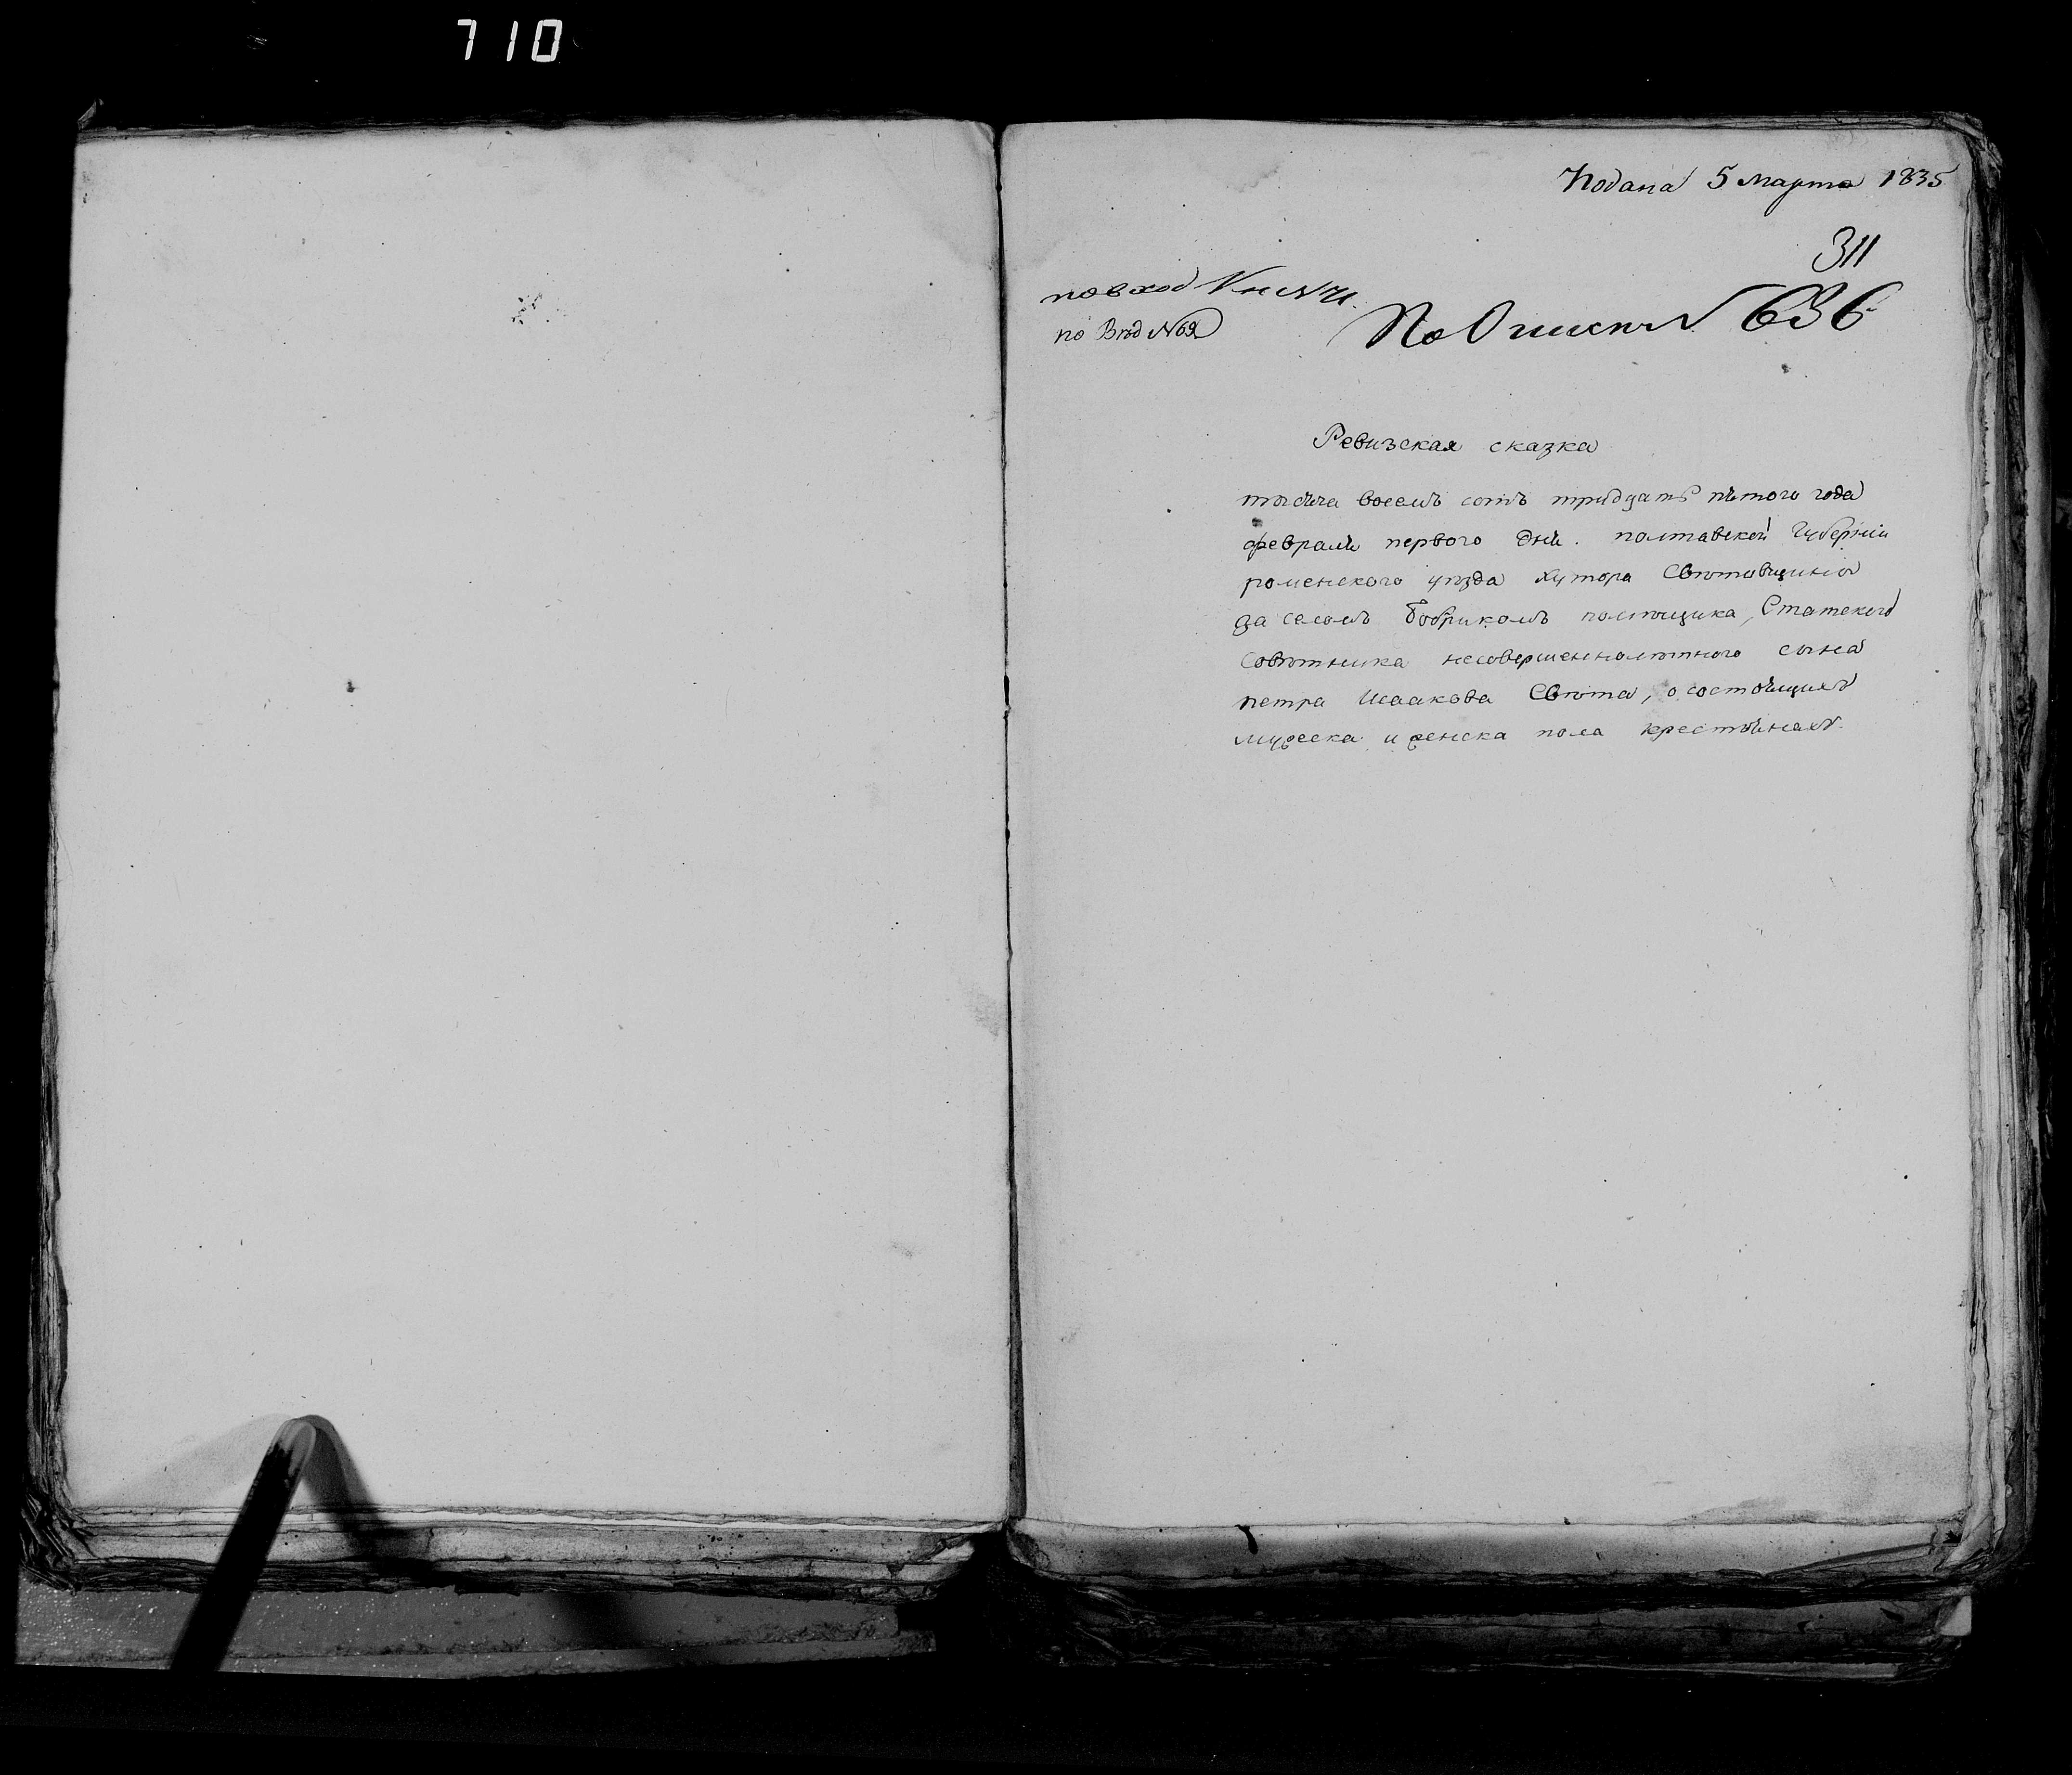 710
Подана 5 марта 1835
311
по вход
по Вѣд №69
По Описи № 636
Ревизская сказка
тысяча восемъ сотъ тридцать пятого года
февраля первого дня. полтавской Губернии
роменского уѣзда хутора Свѣтовщины
за селомъ Бобрикомъ помѣщика, Статского
Совѣтника несовершеннолѣтного сына
петра Исаакова Свѣта, о состоящихъ
мужеска и женска пола крестьянахъ.